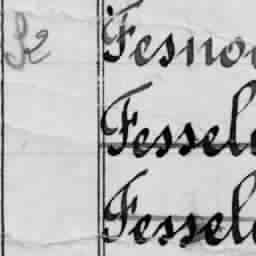 Fesno
Fessel
Fessel